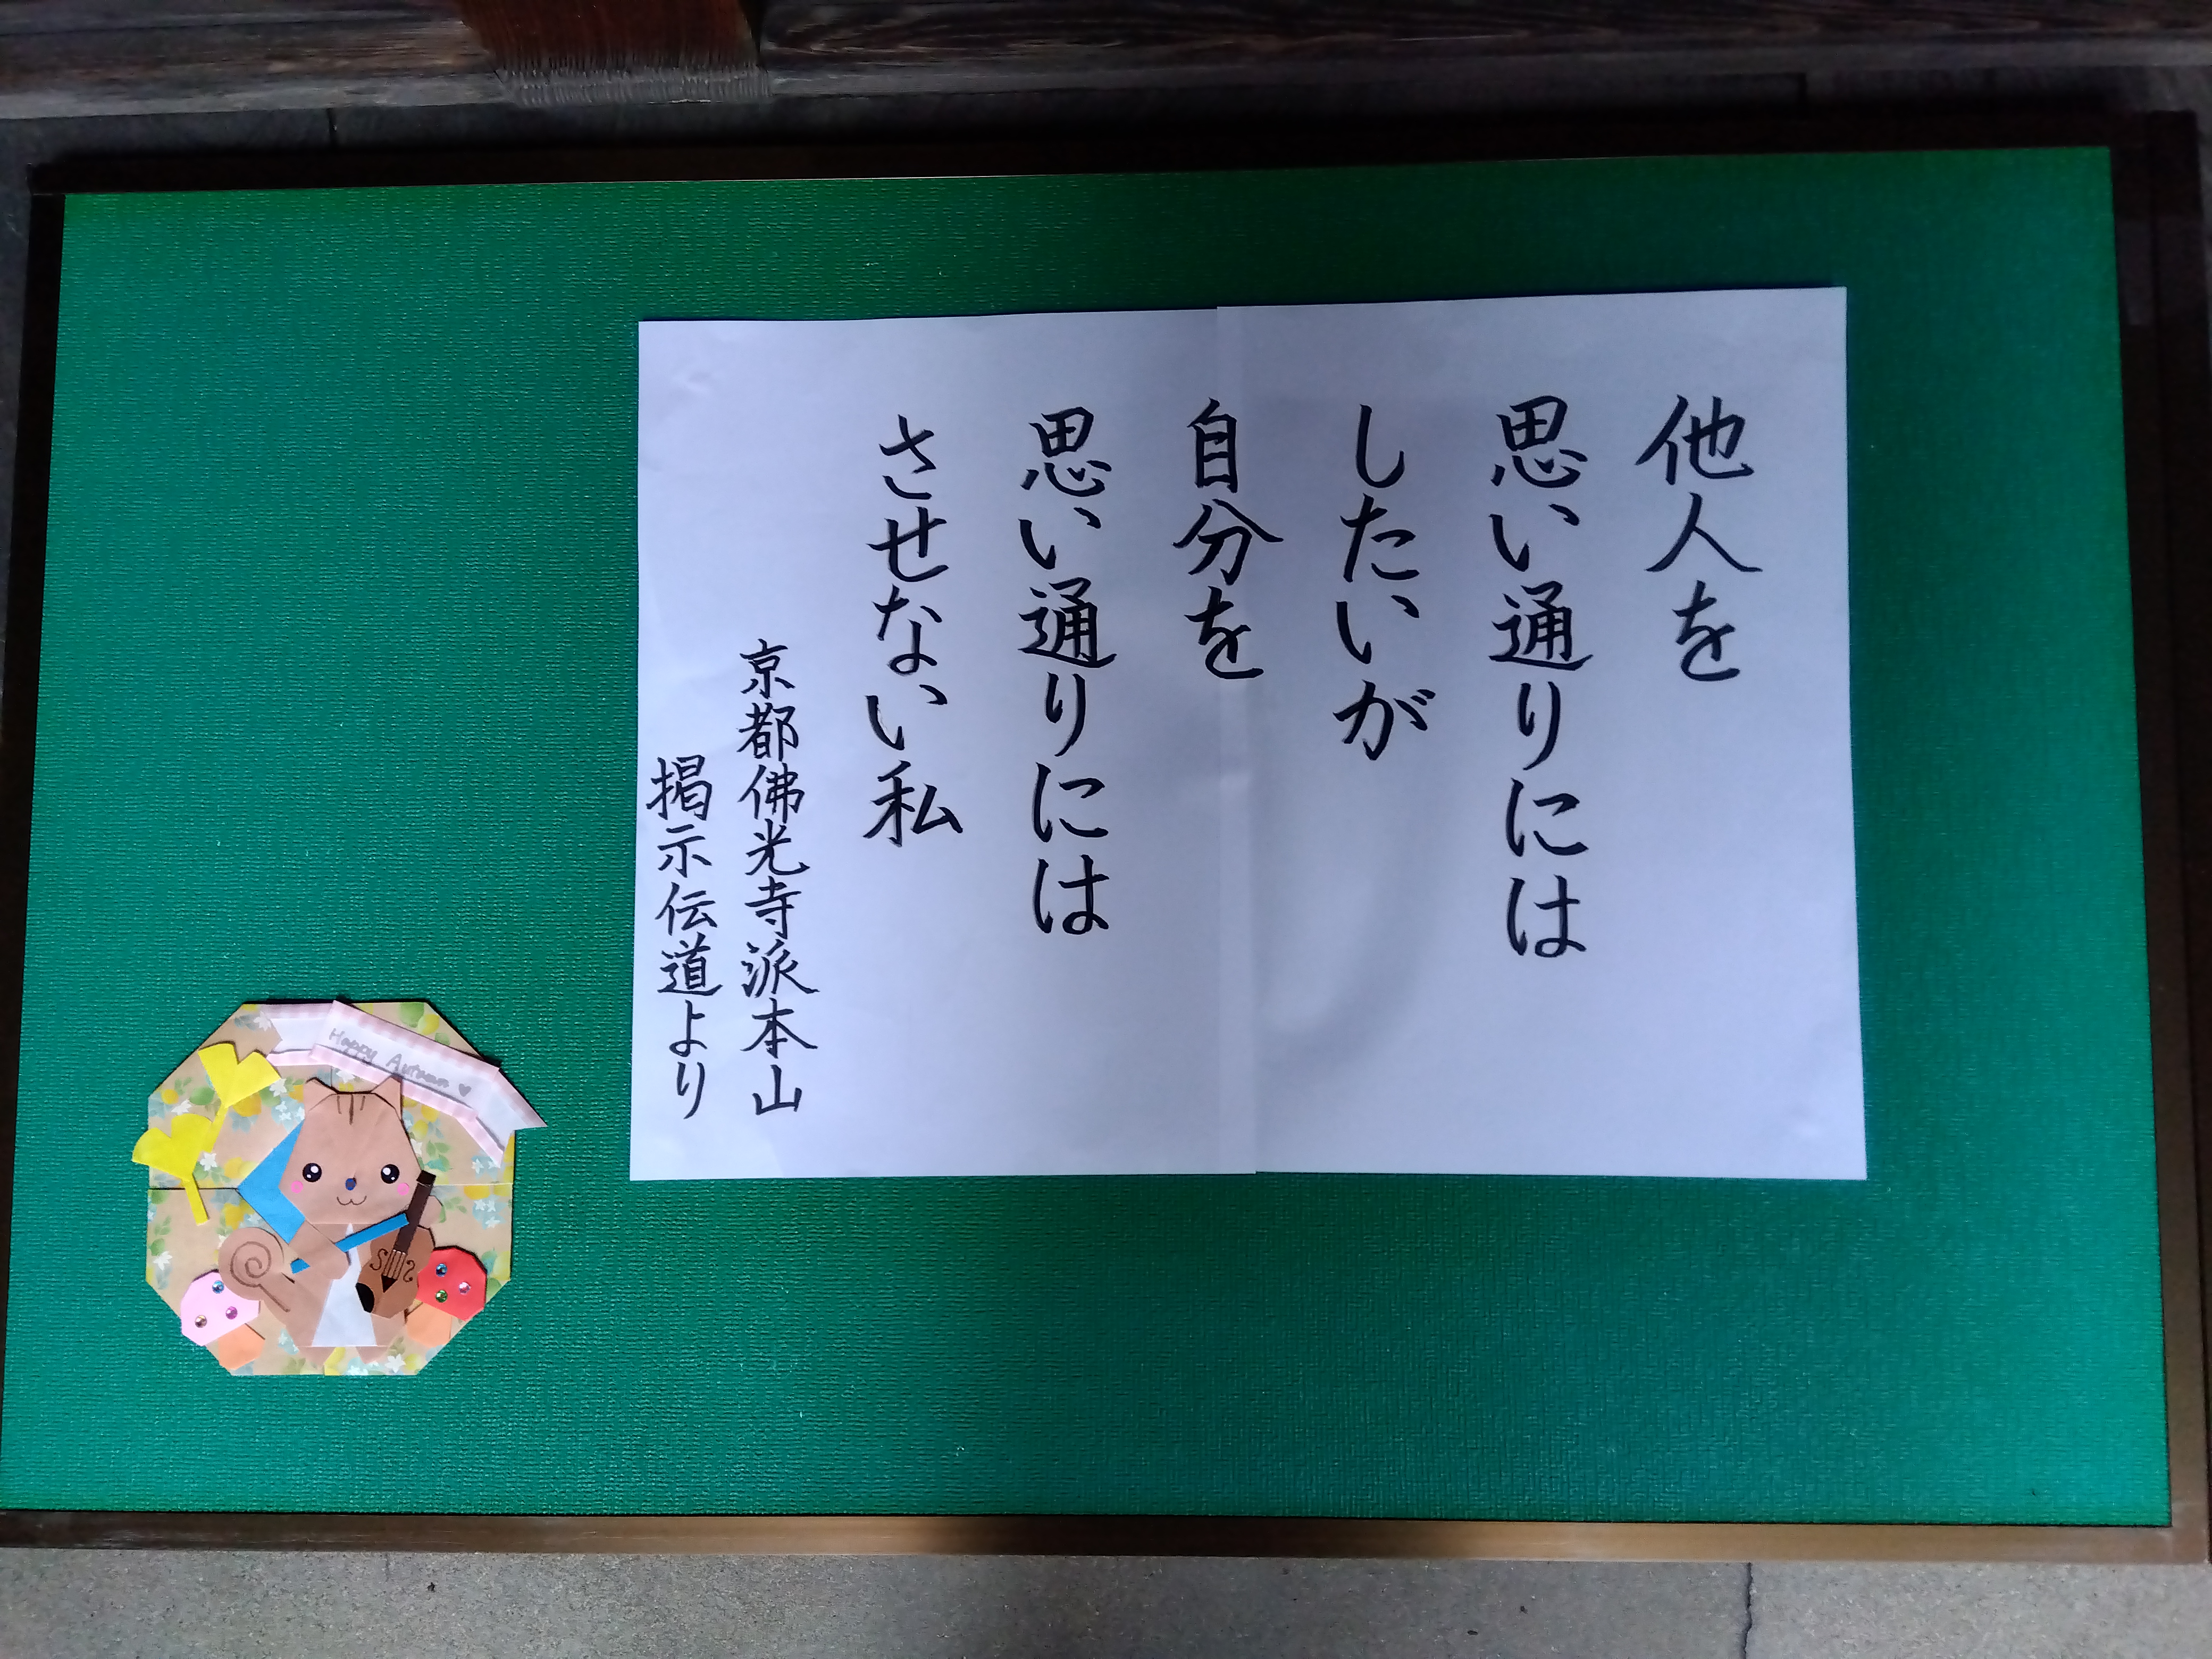 他人を
思い通りには
したいが
自分を
思い通りには
させない私
京都佛光寺派本山
掲示伝道より
Happy Autumn ♥